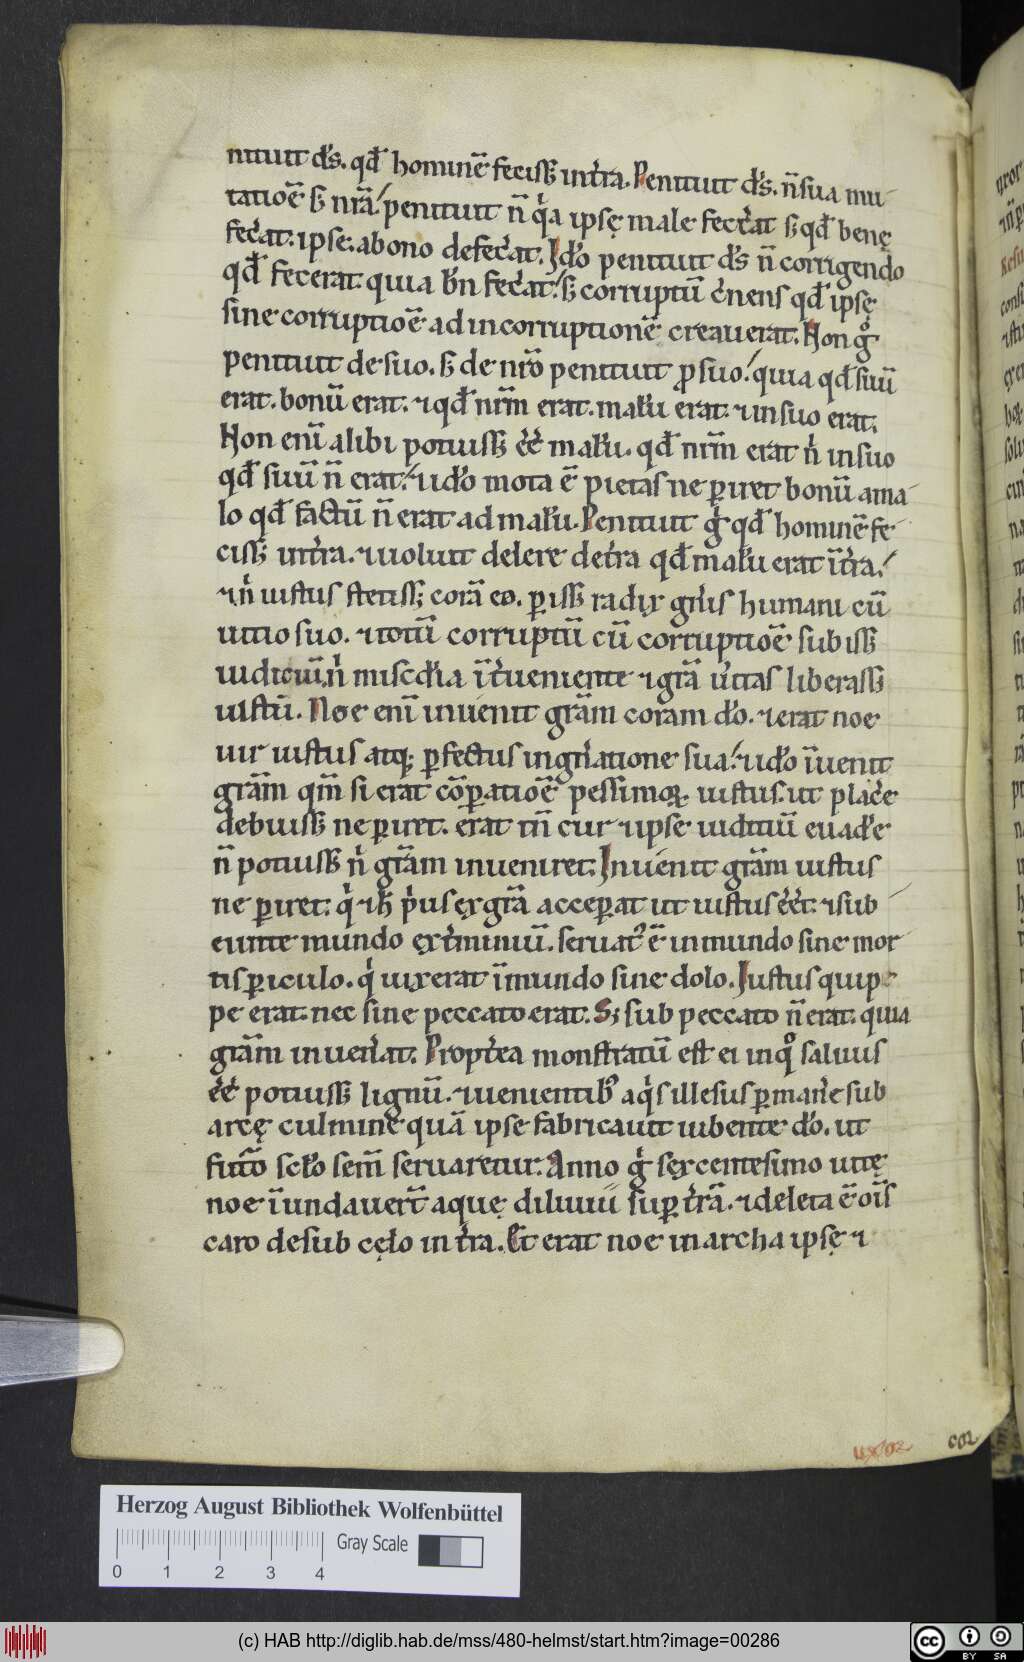 nituit ds̄. qđ hominē feciss& int̄ra. Penituit ds̄. n̄ sua mu
tatioē s; nr̄a. penituit n̄ q̇a ipsę male fec̄at s; qđ benę
fec̄at. ipse abono defec̄at. Id̄o penituit ds̄ n̄ corrigendo
qđ fecerat. quia b̄n fec̄at. s; corruptū c̄nens qđ ipsę
sine corruptioē ad incorruptionē creauerat. Non gͦ
penituit de suo. s; de nr̄o penituit ꝓ suo. quia qđ suū
erat. bonū erat. ⁊ qđ nr̄m erat. malū erat. ⁊ in suo erat.
Non enī alibi potuiss& eē malū. qđ nr̄m erat nͥ in suo
qđ suū n̄ erat. ⁊ id̄o mota ē pietas ne ꝑiret bonū a ma
lo qđ factū n̄ erat ad malū. Penituit gͥ qđ hominē fe
ciss& int̄ra. ⁊ uoluit delere det̄ra qđ malū erat īt̄ra.
⁊ nͥ iustus stetiss& corā eo. ꝑiss& radix gn̄is humani cū
uitio suo. ⁊ totū corruptū cū corruptioē subiss&
iudiciū nͥ miscd̄ia īt̄ueniente ⁊ gr̄a ūitas liberass&
iustū. Noe enī inuenit gr̄am coram dō. ⁊ erat noe
uir iustus atq; ꝑfectus in gn̄atione sua. ⁊ id̄o īuenit
gr̄am qm̄ si erat cōꝑatioē pessimoꝝ iustus. ut plac̄e
debuiss& ne ꝑiret. erat tn̄ cur ⁊ ipse iuditiū euad̄e
n̄ potuiss& nͥ gr̄am inueniret. Inuenit gr̄am iustus
ne ꝑiret. qͥ ⁊ h̄ pͥus ex gr̄a acceꝑat ut iustus eēt. ⁊ sub
eunte mundo ext̄miniū. seruat᷒ ē in mundo sine mor
tis ꝑiculo. qͥ uixerat īmundo sine dolo. Iustus quip
pe erat. nec sine peccato erat. S; sub peccato n̄ erat. quia
gr̄am inuen̄at. Propt̄ea monstratū est ei in qͦ saluus
eē potuiss& lignū. ⁊ uenientib᷒ aqͥs illesus ꝑman̄e sub
arcę culmine quā ipse fabricauit iubente dō. ut
futūo scl̄o sem̄ seruaretur. Anno gͥ sexcentesimo uitę
noe īundauert̄ aquę diluuii suꝑ t̄rā. ⁊ deleta ē oīs
caro desub cęlo in t̄ra. Et erat noe in archa ipsę ⁊
Herzog August Bibliothek Wolfenbüttel
Gray Scale
0 1 2 3 4
(c) HAB http://diglib.hab.de/mss/480-helmst/start.htm?image=00286
cc BY SA